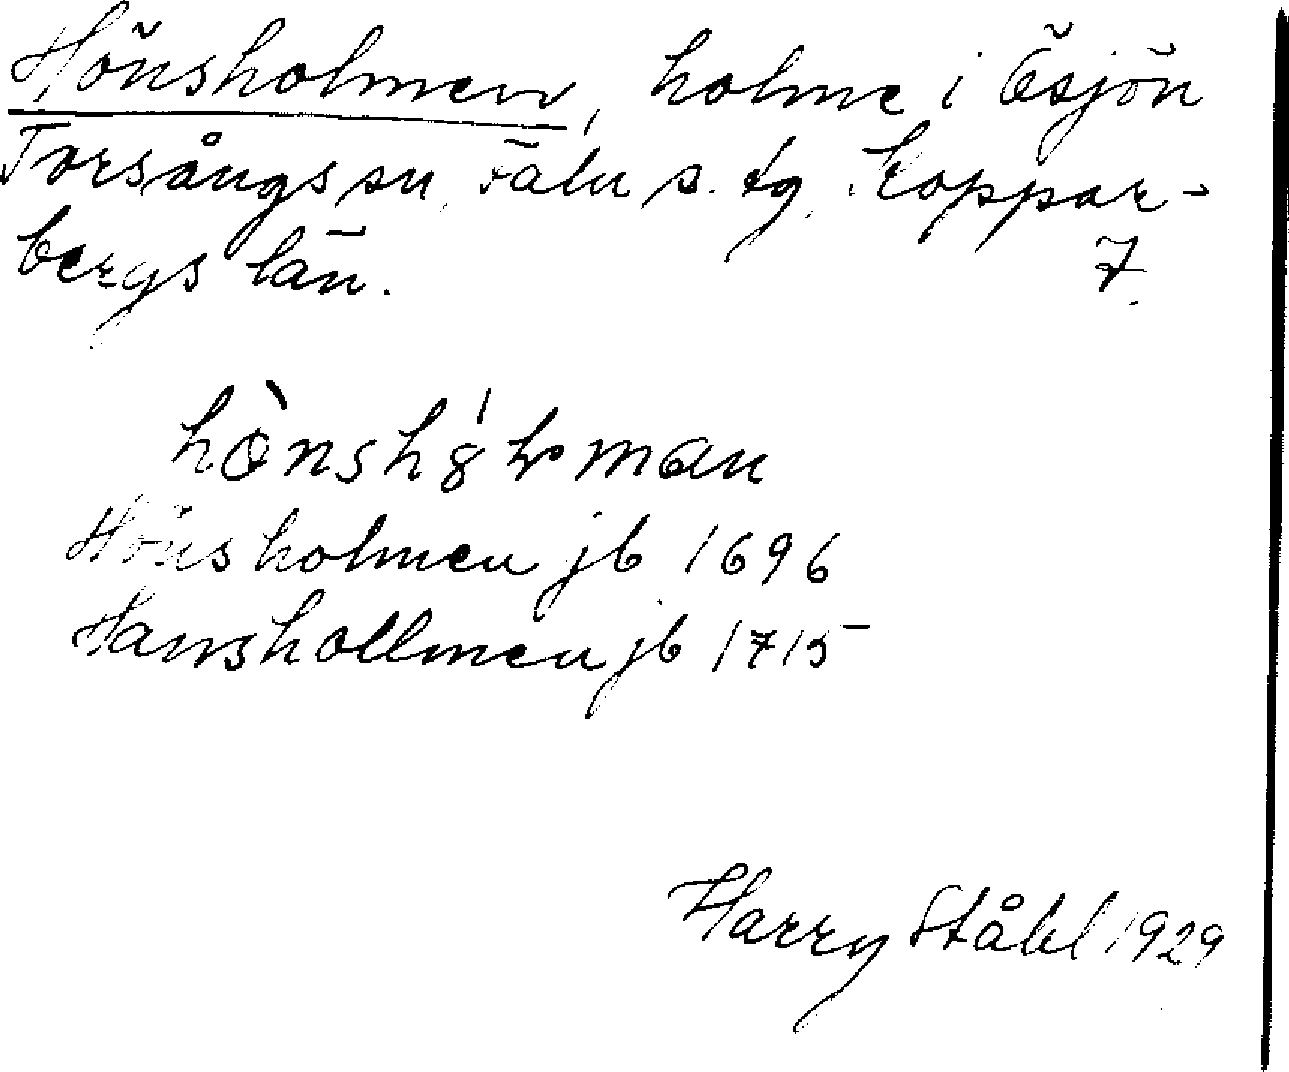 Hönsholmen, holme i Ösjön
Torsångs sn, Falu s. tg, Koppar-
bergs län. 7.
Hönsholmen jb 1696
Hanshollmen jb 1715
Harry Ståhl 1929